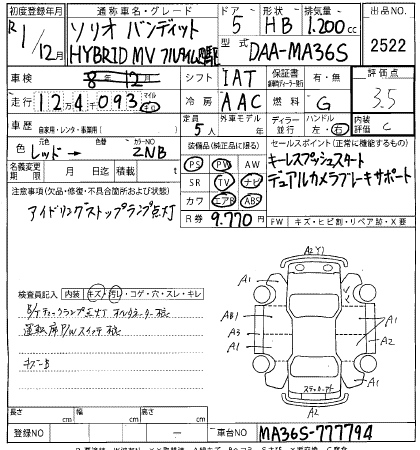 初度登録年月 通称車名・グレード ドア 形状 排気量 出品NO
R 1/12月 ソリオ バンディット 5 HB 1.200cc
HYBRID MV フルタイム4WD 型式 DAA-MA36S 2522
車検 8年12月 シフト IAT 保証書 有・無 評価点
走行 124093 マイル キロ 冷房 AAC 燃料 G 3.5
車歴 自家用・レンタ・事業用( ) 定員 5人 外車モデル 年 ディーラー 並行 ハンドル 左・右 内装評価 C
色 元色 レッド→ 色替 カラーNO ZNB 装備品(純正品に限る) セールスポイント(正常に機能するもの)
名義変更期限 月 日 積載 t PS PW AW キーレスプッシュスタート
注意事項(欠品・修復・不具合箇所および状態) SR TV ナビ デュアルカメラブレーキサポート
アイドリングストップランプ点灯 カワ エアB ABS
R券 9.770円 FW キズ・ヒビ割・リペア跡・X要
検査員記入 内装 キズ・汚レ・コゲ・穴・スレ・キレ
運転席P/Wスイッチ
A2 Y1
A1 A1
AB1 A1
A3 A2
A1 A1
A2
長さ cm 幅 cm 高さ cm
登録NO ー 車台NO MA36S-777794